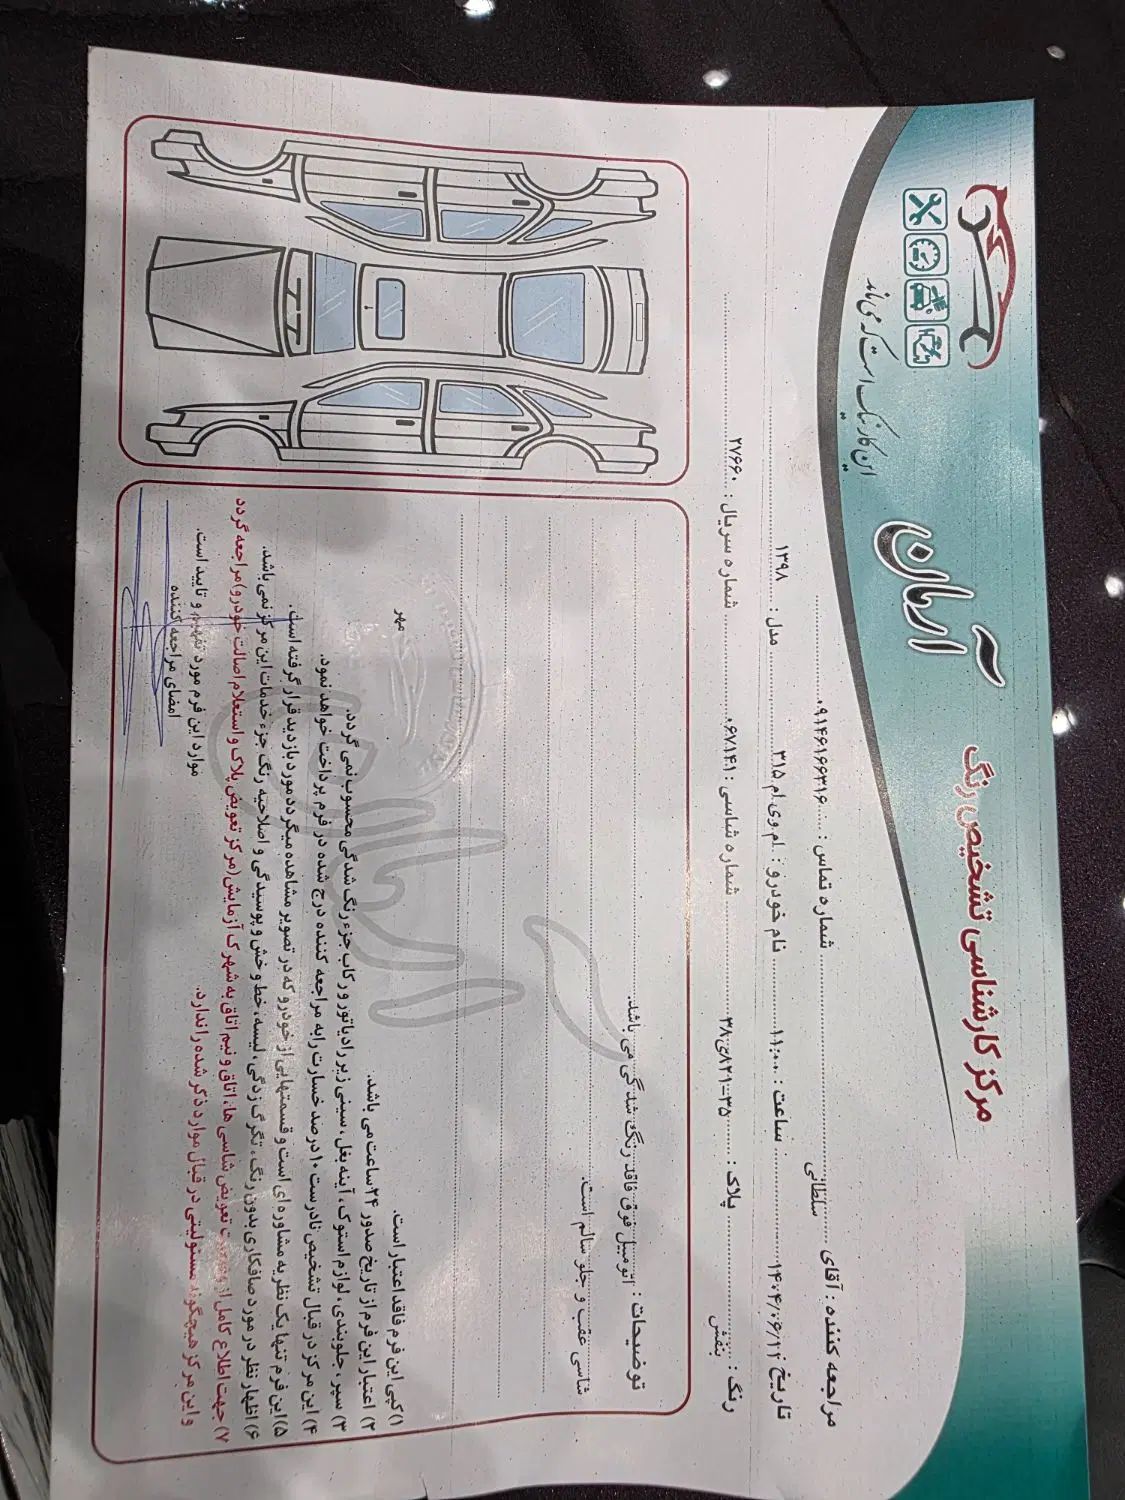 مرکز کارشناسی تشخیص رنگ
آرمان
این کار نیک است که می‌ماند
مراجعه کننده : آقای سلطانی شماره تماس : ۰۹۱۴۶۱۶۶۳۱۶
تاریخ : ۱۴۰۴/۰۶/۱۲ ساعت : ۱۱:۰۰ نام خودرو : ام وی ام ۳۱۵ مدل : ۱۳۹۸
رنگ : بنفش پلاک : ۳۵-۸۲۱ی۳۸ شماره شاسی : ۰۶۷۱۴۱ شماره سریال : ۲۷۶۶۰
توضیحات : اتومبیل فوق فاقد رنگ شدگی می باشد.
شاسی عقب و جلو سالم است.
۱) کپی این فرم فاقد اعتبار است.
مهر
۲) اعتبار این فرم از تاریخ صدور ۲۴ ساعت می باشد.
۳) سپر، جلوبندی، لوازم استوک، آینه بغل، سینی زیر رادیاتور و رکاب جزء رنگ شدگی محسوب نمی گردد.
۴) این مرکز در قبال تشخیص نادرست ۱۰ درصد خسارت را به مراجعه کننده درج شده در فرم پرداخت خواهد نمود.
۵) این فرم تنها یک نظریه مشاوره ای است و قسمتهایی از خودرو که در تصویر مشاهده میگردد مورد بازدید قرار گرفته است.
۶) اظهار نظر در مورد صافکاری بدون رنگ، تگرگ زدگی، لیسه، خط و خش و پوسیدگی و اصلاحیه رنگ جزء خدمات این مرکز نمی باشد.
۷) جهت اطلاع کامل از وضعیت تعویض شاسی ها، اتاق و نیم اتاق به شهرک آزمایش (مرکز تعویض پلاک و استعلام اصالت خودرو) مراجعه گردد
و این مرکز هیچگونه مسئولیتی در قبال موارد ذکر شده را ندارد.
موارد این فرم مورد تفهیم و تایید است.
امضای مراجعه کننده